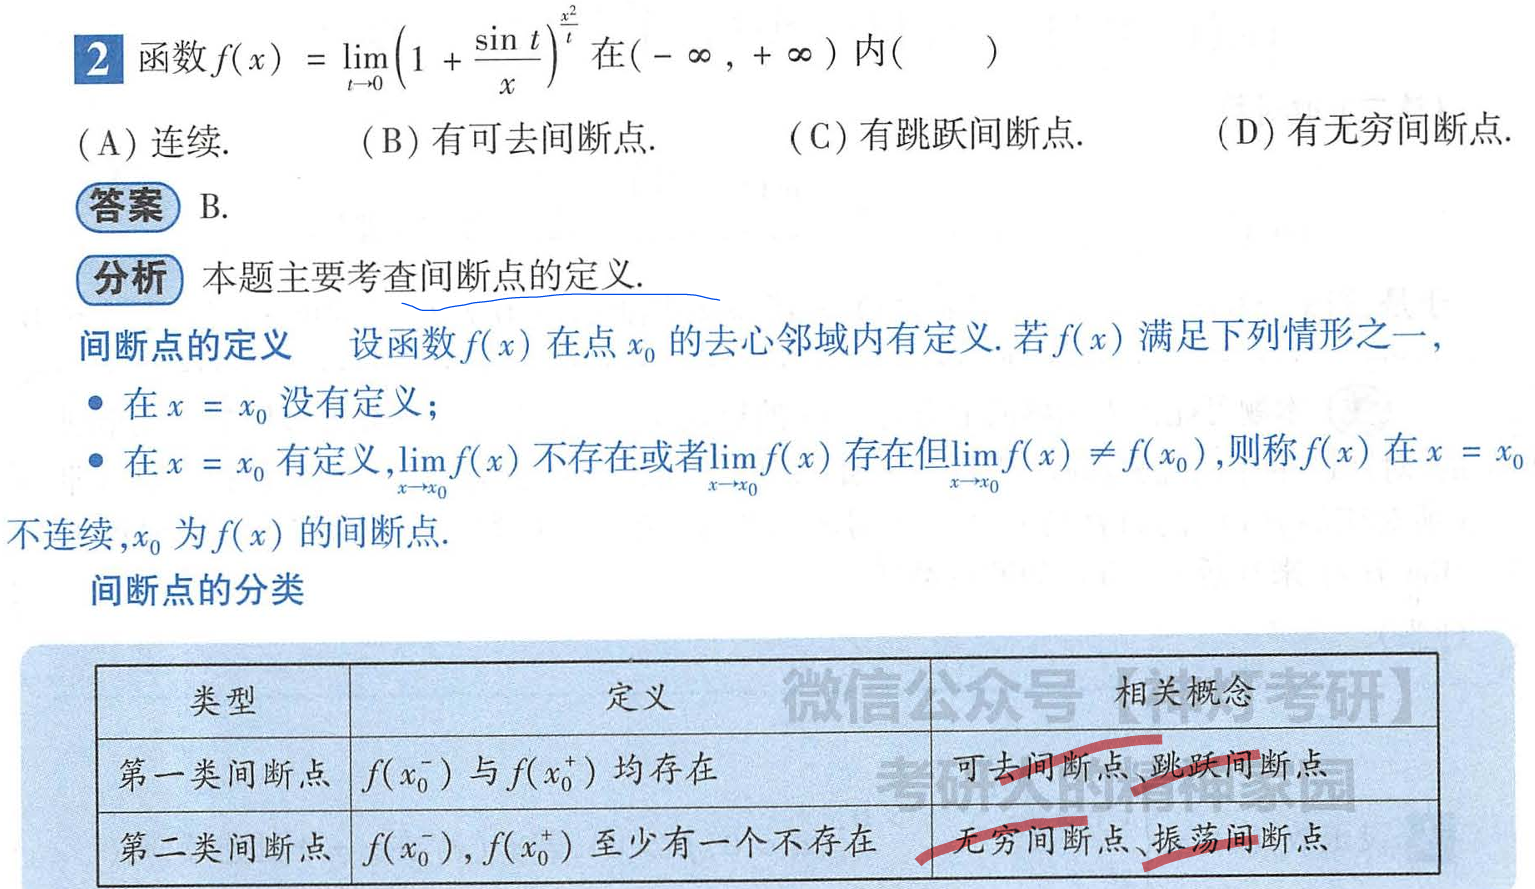 2 函数 f(x) = lim_{t→0}(1 + sin t/x)^{x²/t} 在(-∞, +∞) 内(      )
(A) 连续.   (B) 有可去间断点.   (C) 有跳跃间断点.   (D) 有无穷间断点.
答案 B.
分析 本题主要考查间断点的定义.
间断点的定义 设函数 f(x) 在点 x₀ 的去心邻域内有定义. 若 f(x) 满足下列情形之一,
• 在 x = x₀ 没有定义;
• 在 x = x₀ 有定义, lim_{x→x₀} f(x) 不存在或者 lim_{x→x₀} f(x) 存在但 lim_{x→x₀} f(x) ≠ f(x₀), 则称 f(x) 在 x = x₀
不连续, x₀ 为 f(x) 的间断点.
间断点的分类
微信公众号【神灯考研】
考研人的精神家园
类型 定义 相关概念
第一类间断点 f(x₀⁻) 与 f(x₀⁺) 均存在 可去间断点、跳跃间断点
第二类间断点 f(x₀⁻), f(x₀⁺) 至少有一个不存在 无穷间断点、振荡间断点